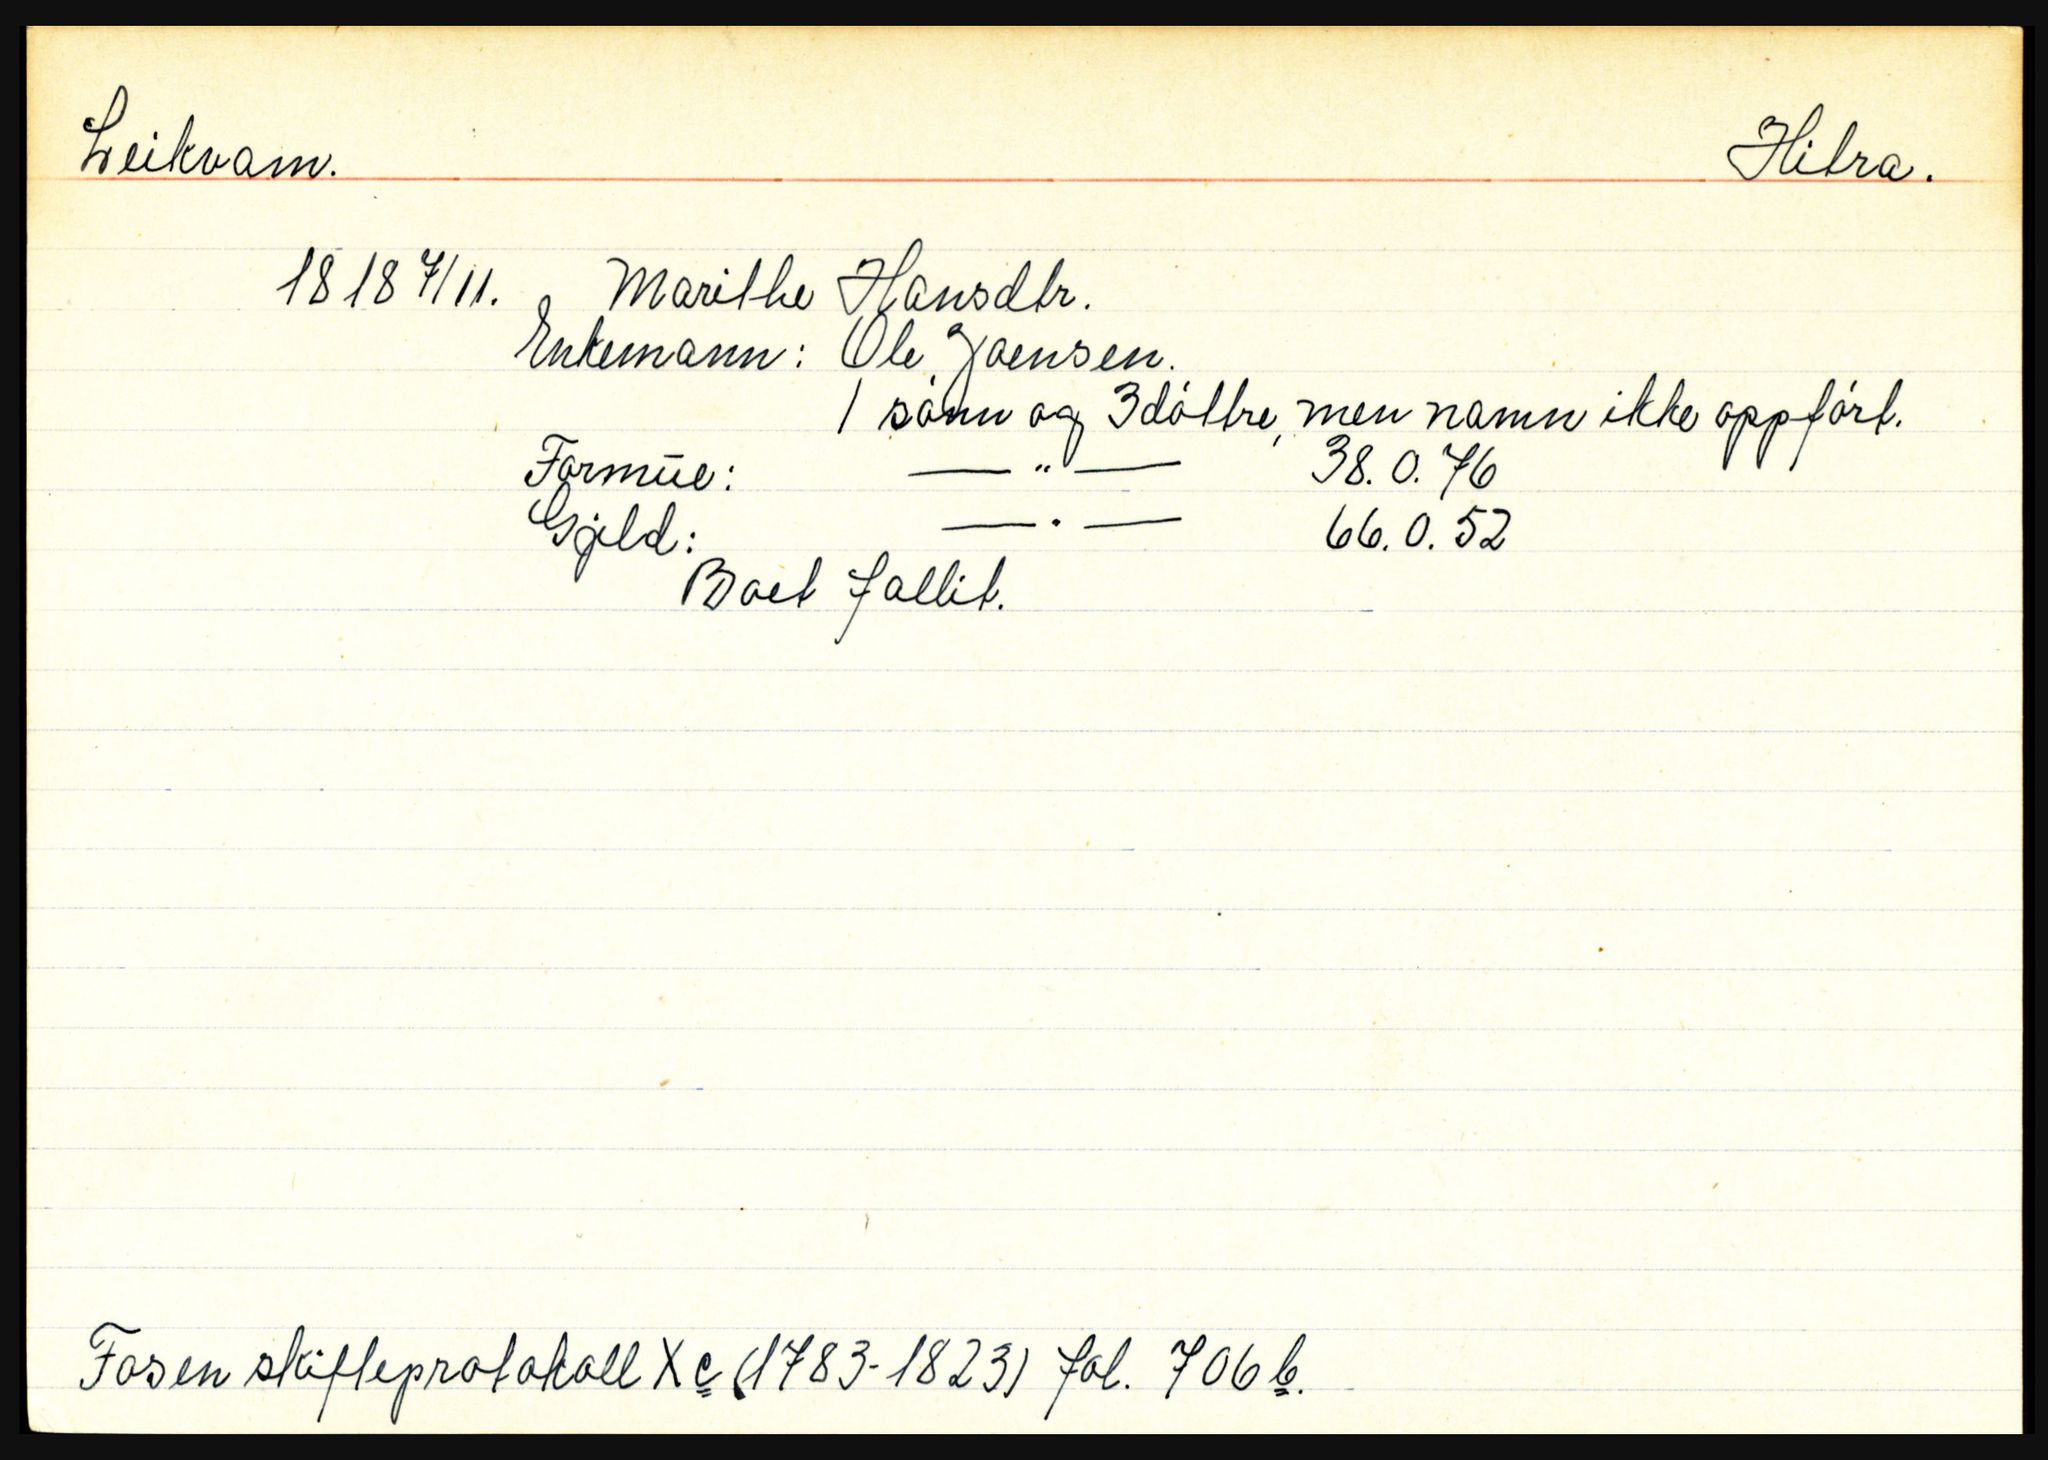 Leikvam. Hitra.
1818 7/11. Marithe Hansdtr.
Enkemann: Ole Joensen.
1 sønn og 3 døttre, men namn ikke oppført.
Formue: — " — 38.0.76
Gjeld: — " — 66.0.52
Boet fallit.
Fosen skifteprotokoll X c (1783-1823) fol. 706 b.